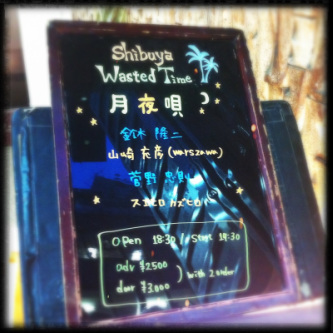 Shibuya
Wasted Time
月夜唄
鈴木 隆二
山崎 彦 (warszawa)
菅野 忠則
Open 18:30 / Start 19:30
adv ¥2500
door ¥3000
with 2 order